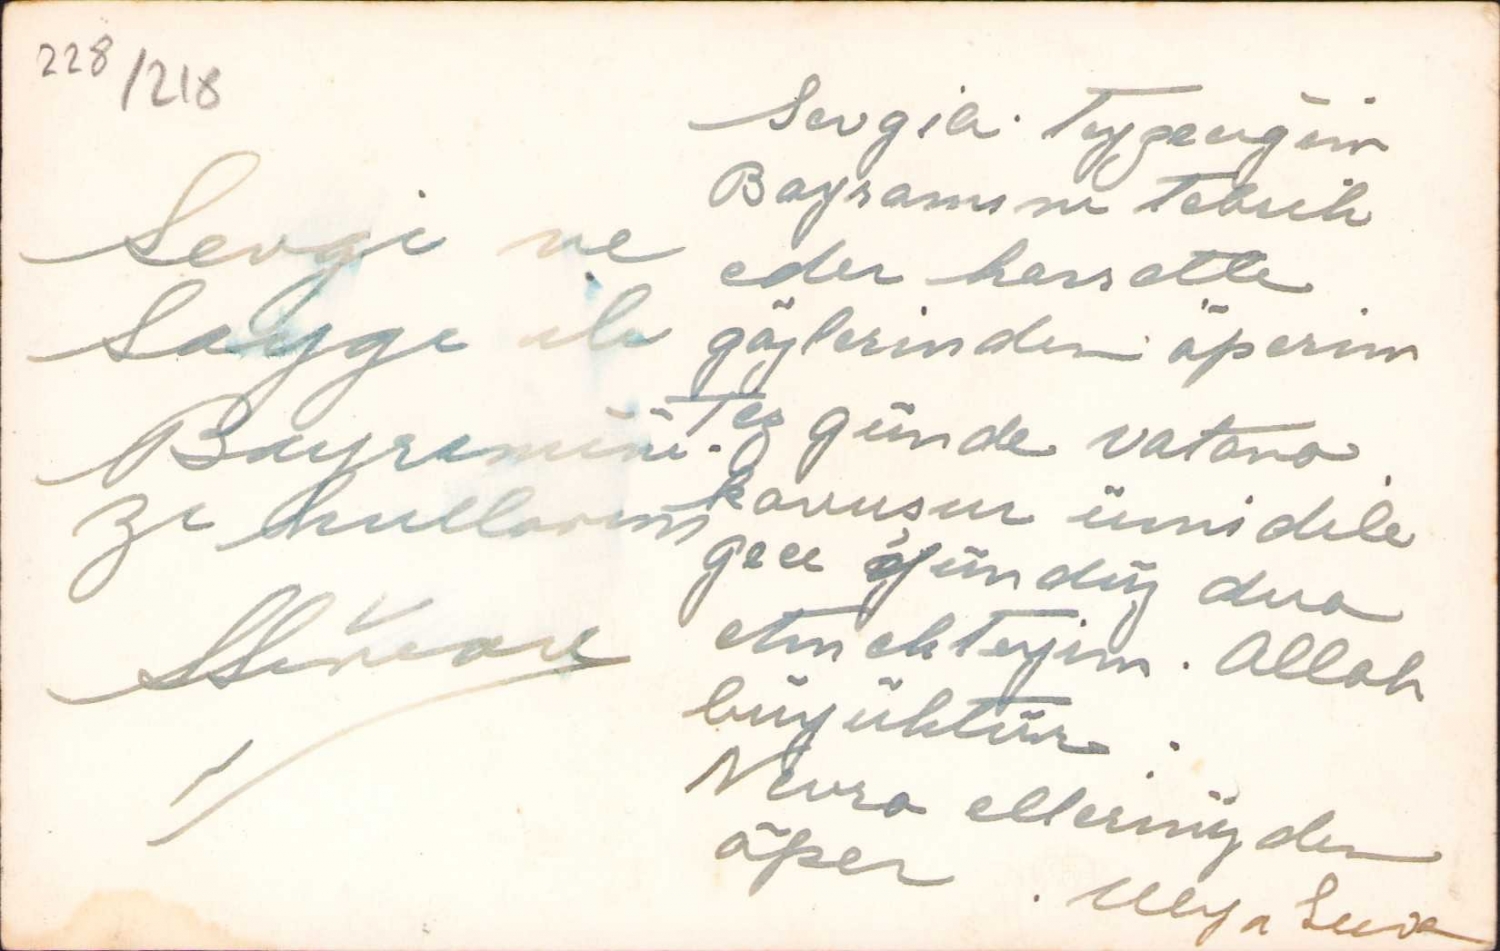 228/218
Sevgi ve
Saygı ile
Bayramını
zı kutlarım
Sevgili Teyzeciğim
Bayramını tebrik
eder hasretle
gözlerinden öperim
Tez günde vatana
kavuşur ümidile
gece gündüz dua
etmekteyim. Allah
büyüktür.
Nevra ellerinizden
öper.